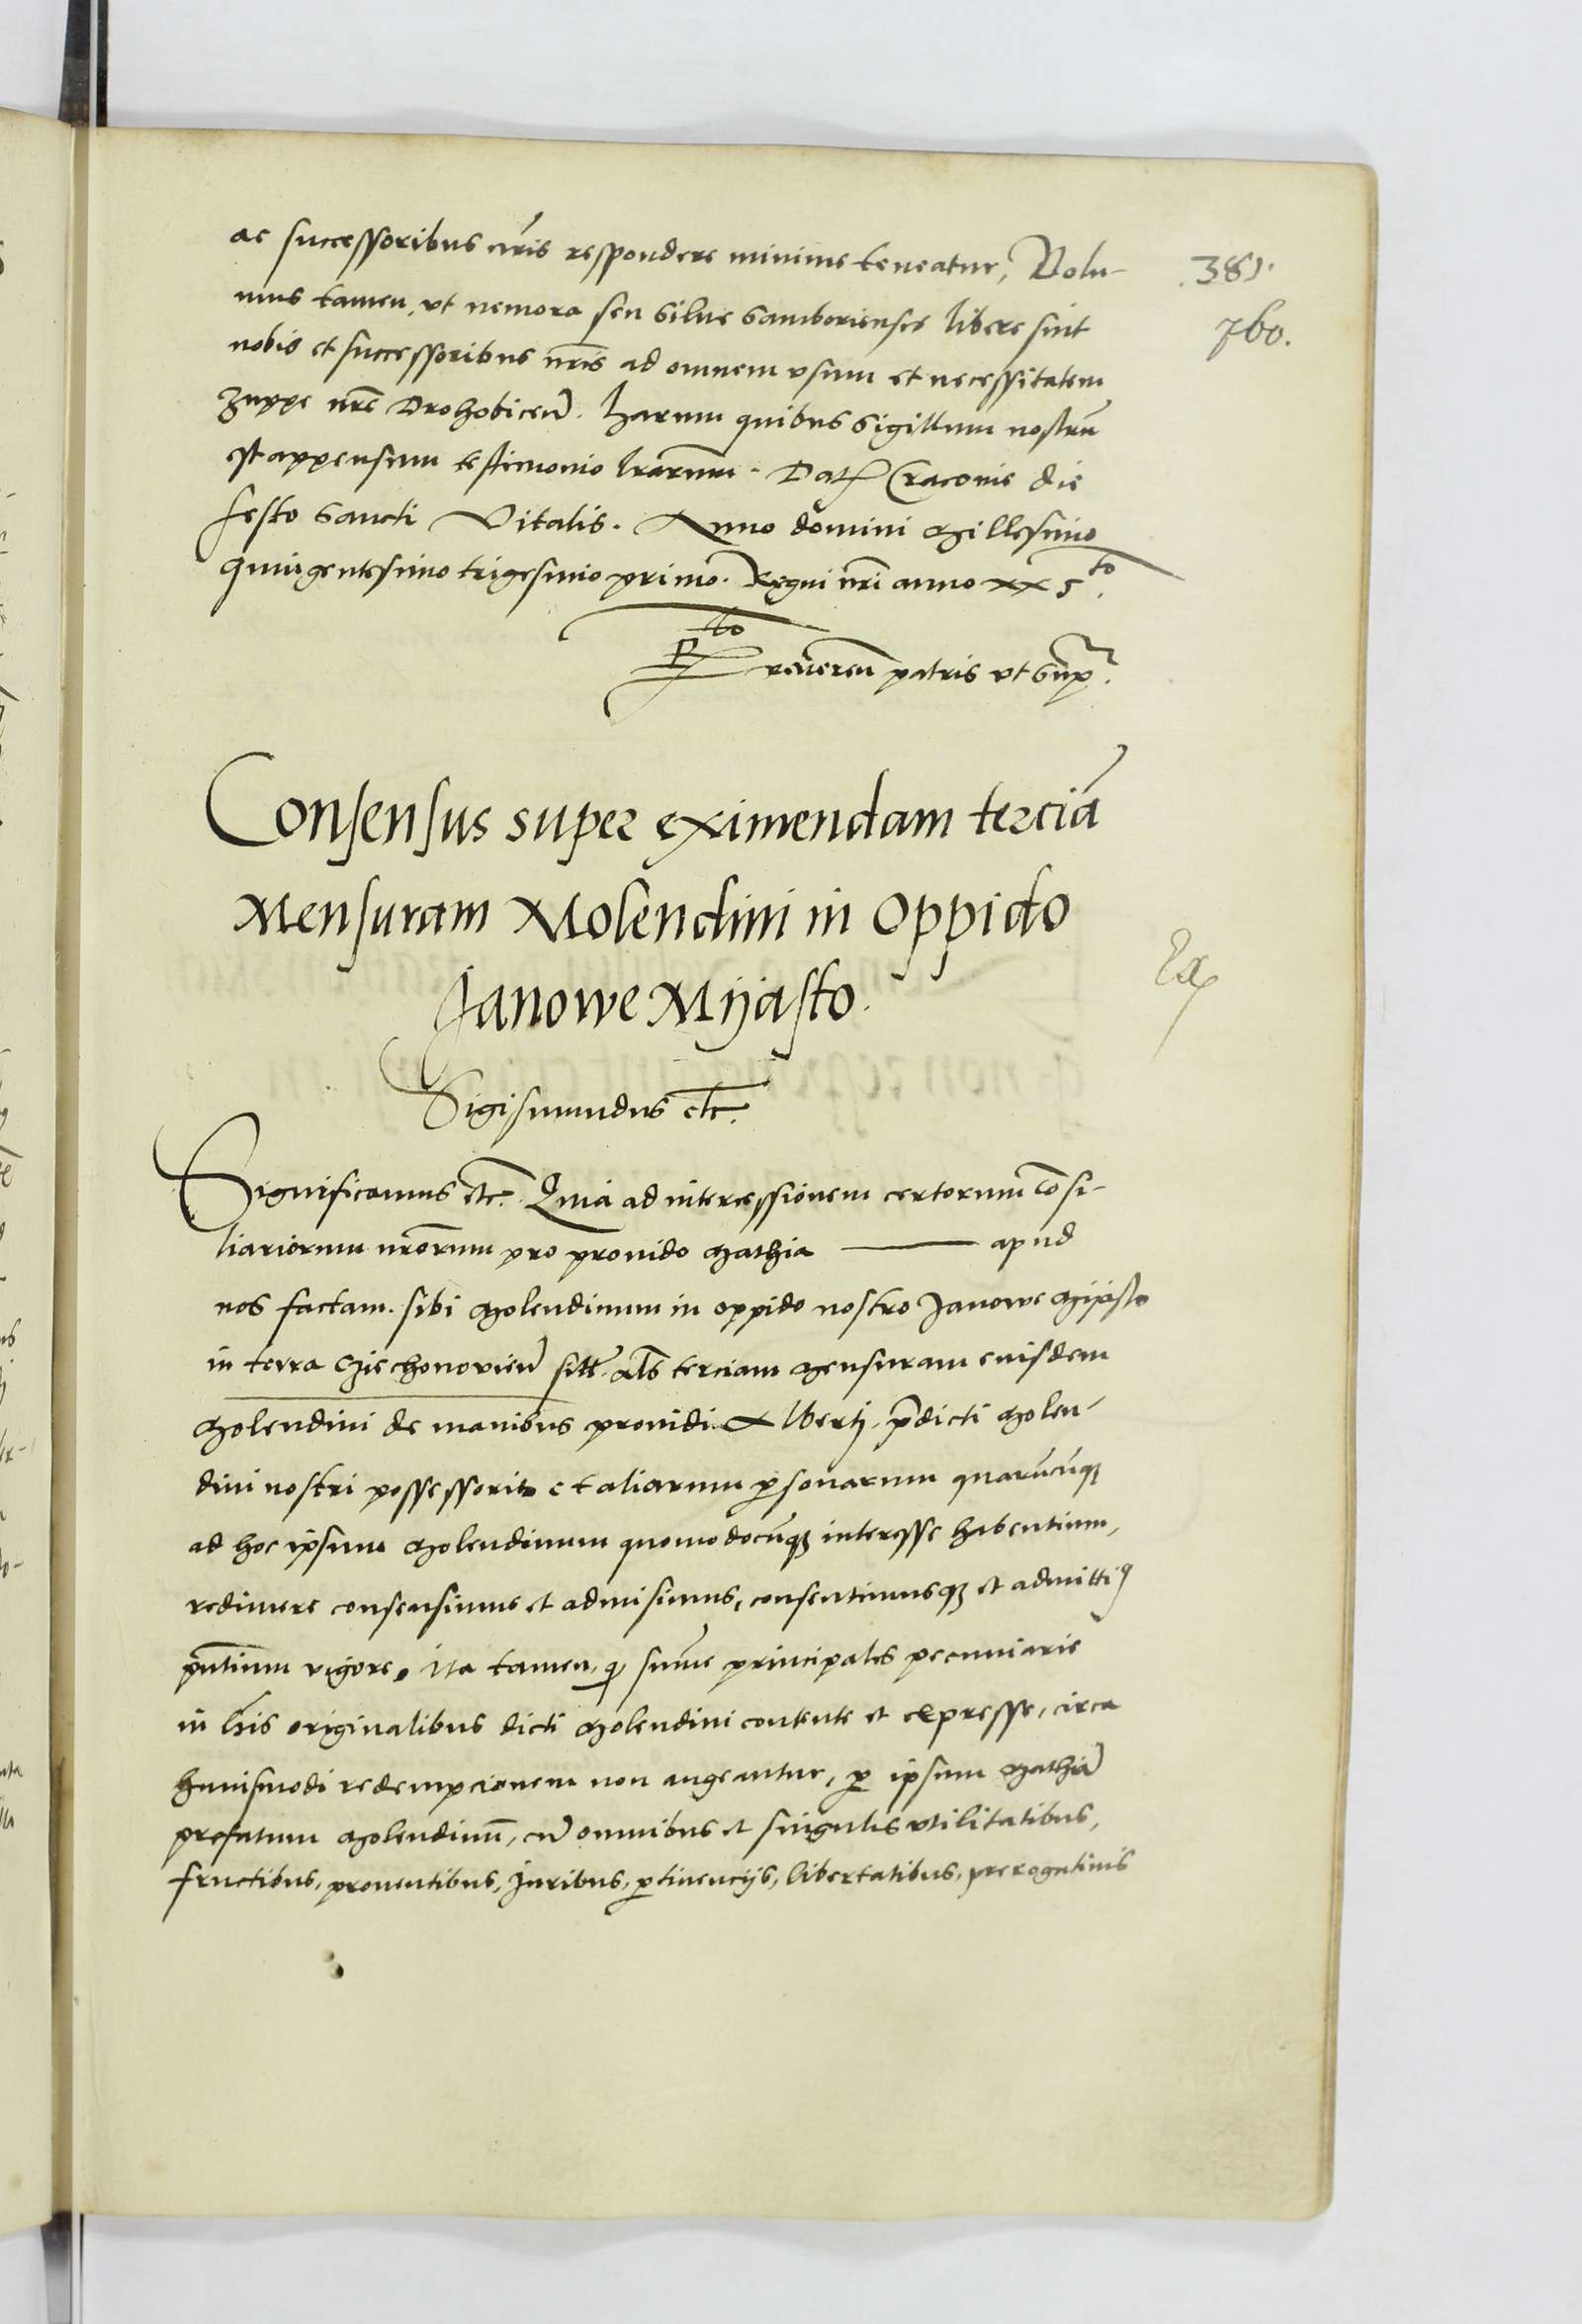 ac successoribus nr̄is respondere minime teneatur, Volu-
381.
mus tamen, vt nemora seu silue samborienses libere sint
760.
nobis et successoribus nr̄is ad omnem vsum et necessitatem
zuppe nr̄e Drohobicen̄. harum quibus sigillum nostrū
est appensum testimonio lr̄arum. Dat Cracovie die
festo sancti Vitalis. Anno domini Millesimo
quingentesimo trigesimo primo. Regni nr̄i anno xx5to.
reueren patris vt sup.
Consensus super eximendam terciā
Mensuram Molendini in Oppido
Janowe Mijasto.
Ex
Sigismundus etc.
Significamus etc. Quia ad intercessionem certorum cōsi-
liariorum nr̄orum pro prouido Mathia ——— apud
nos factam. sibi Molendinum in oppido nostro Janowe Mijasto
in terra Cziechonovien̄ sitt̄. als terciam Mensuram euisdem
Molendini de manibus prouidi Alberti, p̄dicti Molen-
dini nostri possessoris et aliarum p̱sonarum quarūcūqꝫ
ad hoc ipsum Molendinum quomodocūqꝫ interesse habentium,
redimere consensimus et admisimus, consentimusqꝫ et admittiꝯ
pn̄tium vigore. Ita tamen, ꝙ sum̄e principales pecuniarie
in lr̄is originalibus dicti Molendini contente et expresse, circa
huiusmodi redempcionem non augeantur, p̱ ipsum Mathiā
prefatum Molendinū, cū omnibus et singulis vtilitatibus,
fructibus, prouentibus, Juribus, p̱tinencijs, libertatibus, prerogatiuis